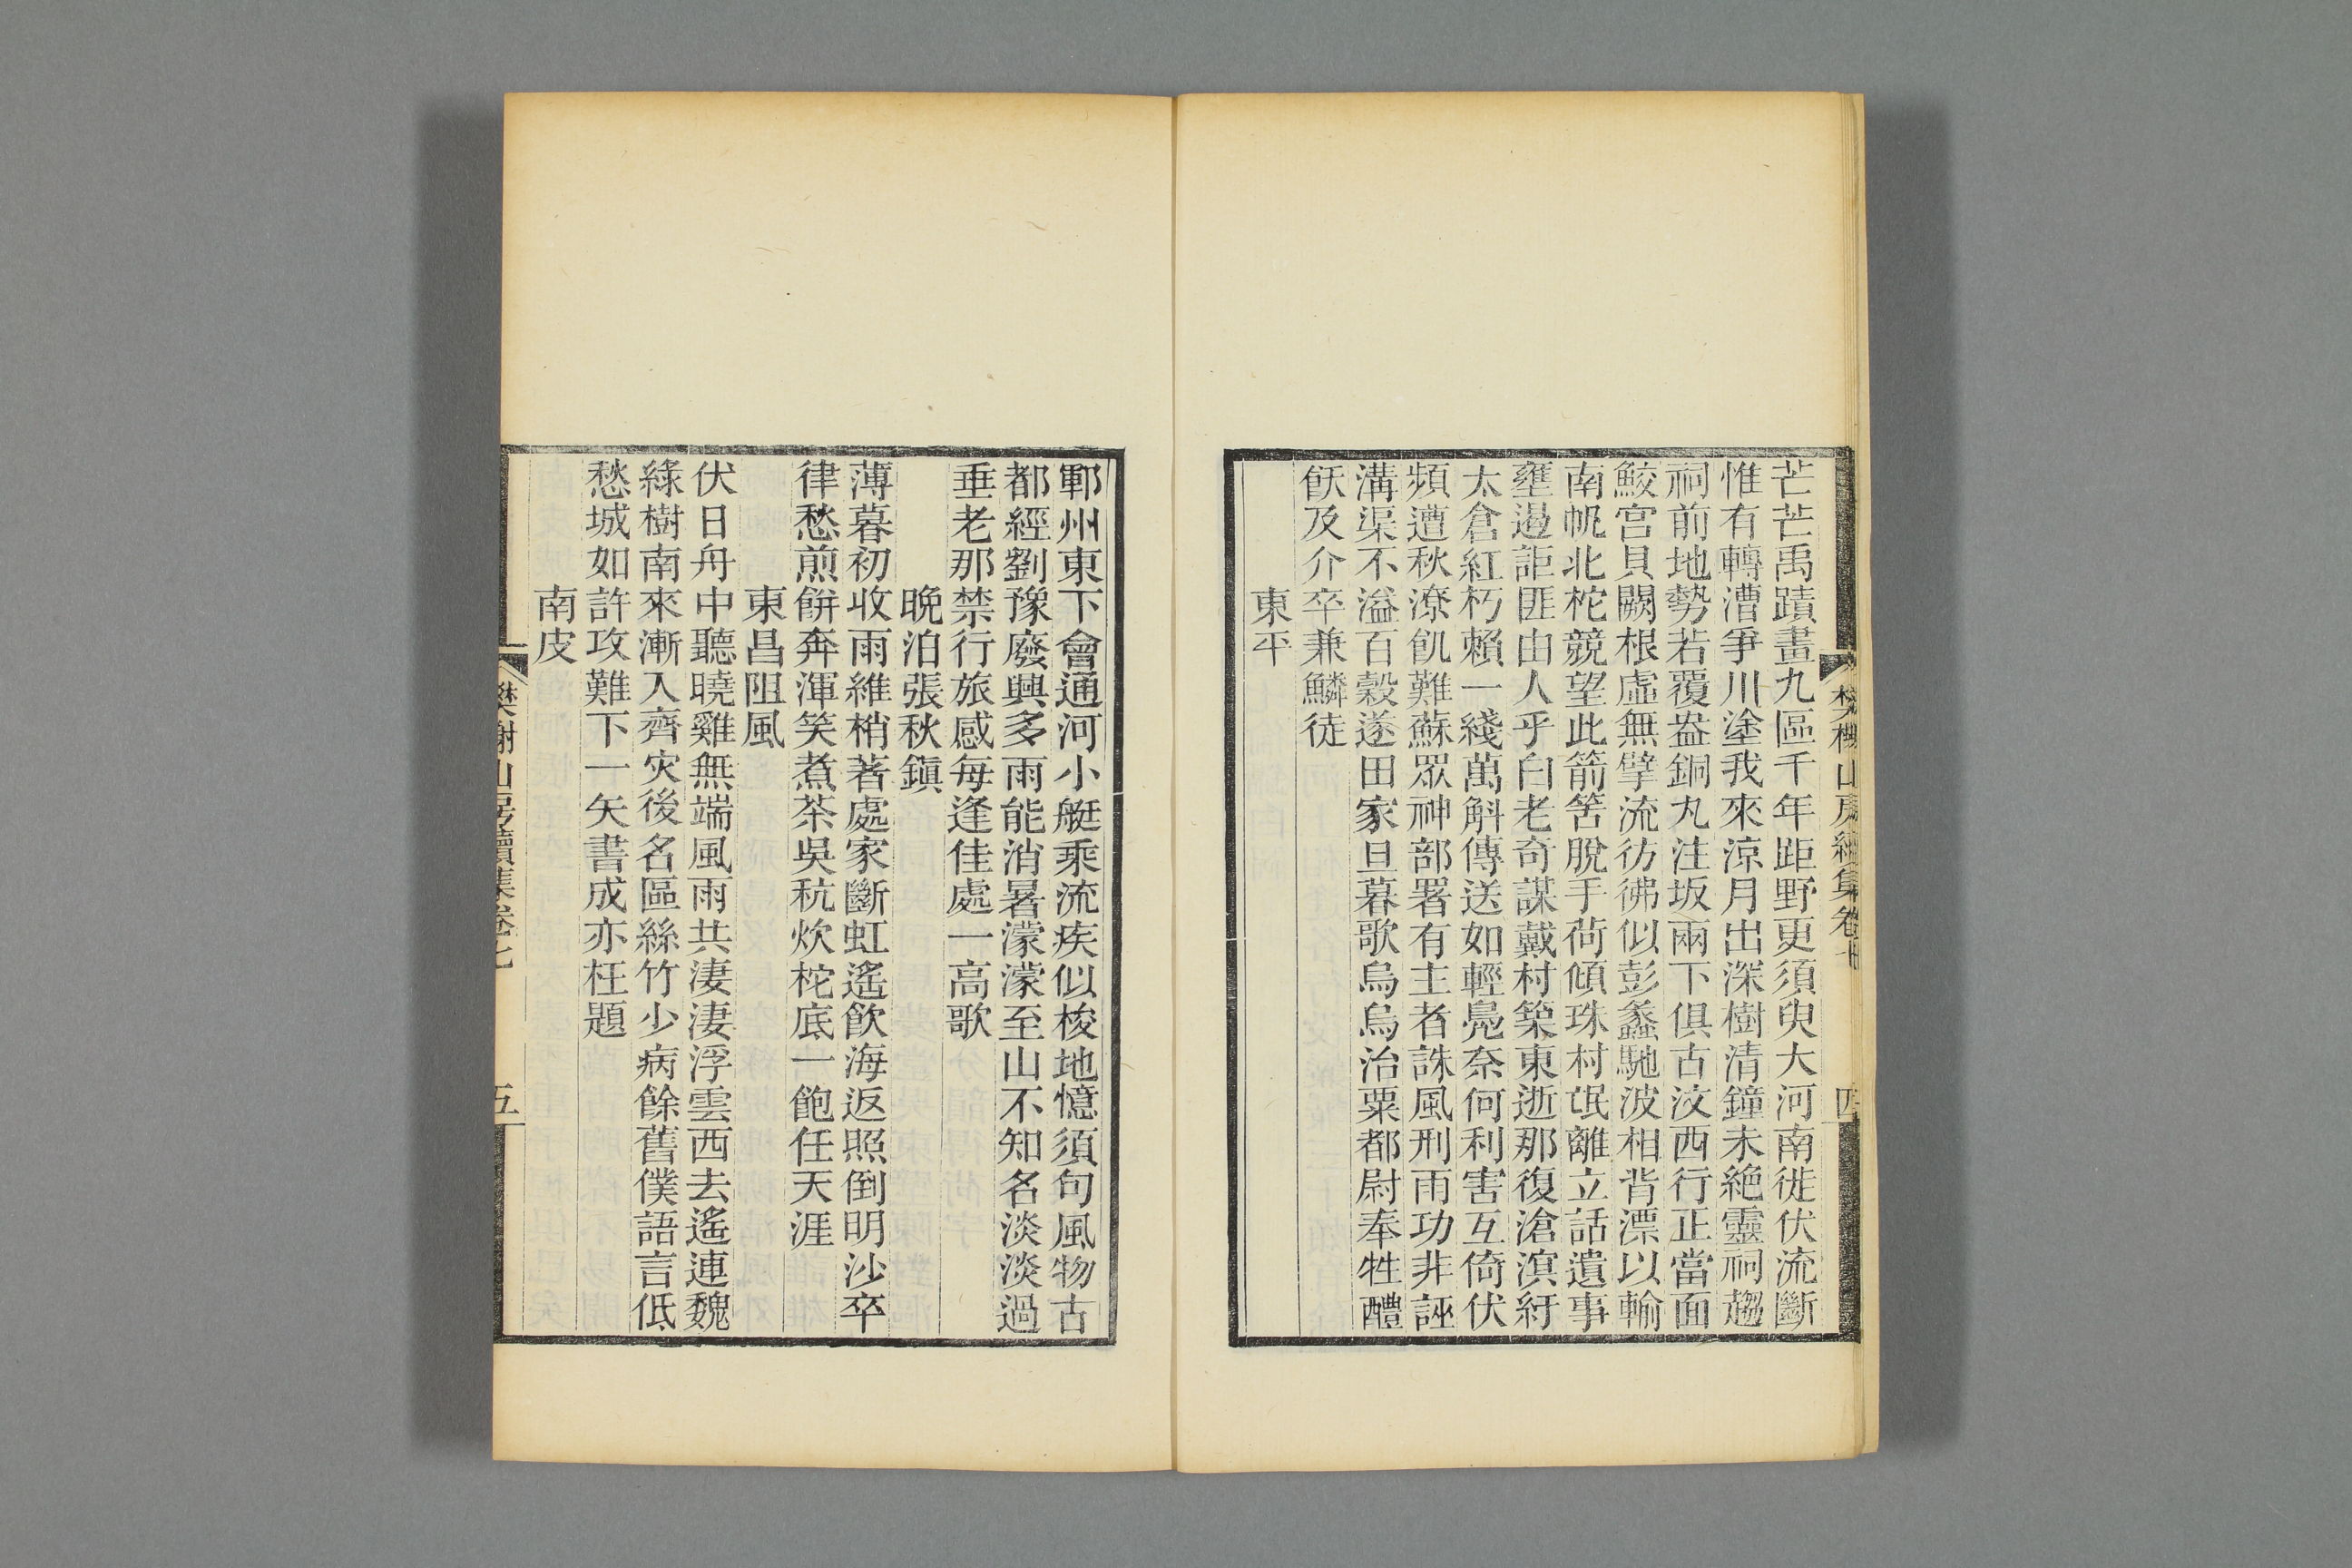 芒芒禹蹟畫九區千年距野更須臾大河南徙伏流斷
惟有轉漕爭川塗我來涼月出深樹清鐘未絕靈祠趨
祠前地勢若覆盎銅丸注坂兩下俱古汶西行正當面
鮫宮貝闕根虛無擘流彷彿似彭蠡馳波相背漂以輸
南帆北柁競望此箭筈脫手荷傾珠村氓離立話遺事
壅遏詎匪由人乎白老奇謀戴村築東逝那復滄溟紆
太倉紅朽賴一綫萬斛傳送如輕鳧奈何利害互倚伏
頻遭秋潦飢難蘇眾神部署有主者誅風刑雨功非誣
溝渠不溢百穀遂田家旦暮歌烏烏治粟都尉奉牲醴
飫及介卒兼鱗徒
東平
樊榭山房續集卷七
四
鄆州東下會通河小艇乘流疾似梭地憶須句風物古
都經劉豫廢興多雨能消暑濛濛至山不知名淡淡過
垂老那禁行旅感每逢佳處一高歌
晚泊張秋鎮
薄暮初收雨維梢著處家斷虹遙飲海返照倒明沙卒
律愁煎餅奔渾笑煮茶吳秔炊柁底一飽任天涯
東昌阻風
伏日舟中聽曉雞無端風雨共淒淒浮雲西去遙連魏
綠樹南來漸入齊灾後名區絲竹少病餘舊僕語言低
愁城如許攻難下一矢書成亦枉題
南皮
樊榭山房續集卷七
五